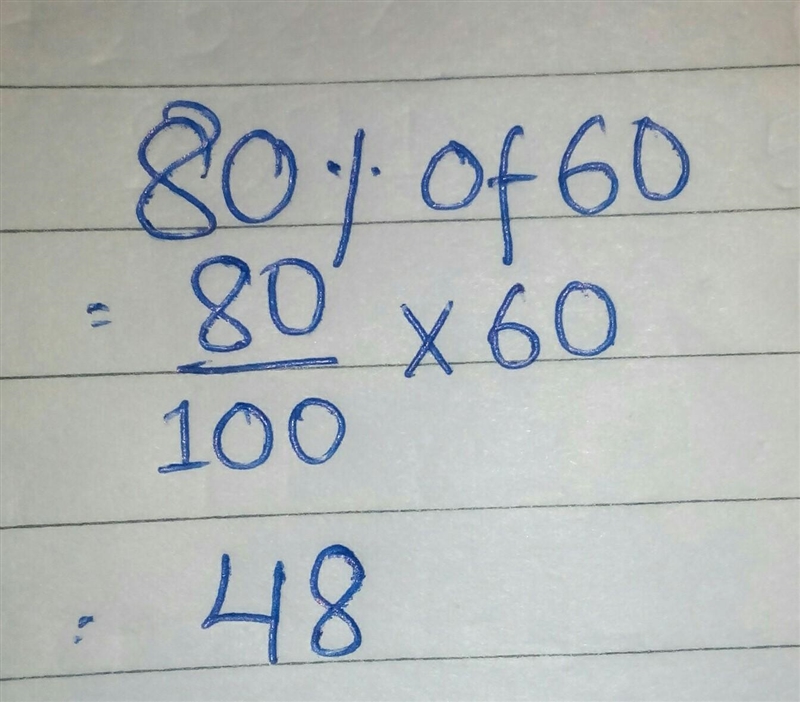 80% of 60
= 80/100 × 60
= 48